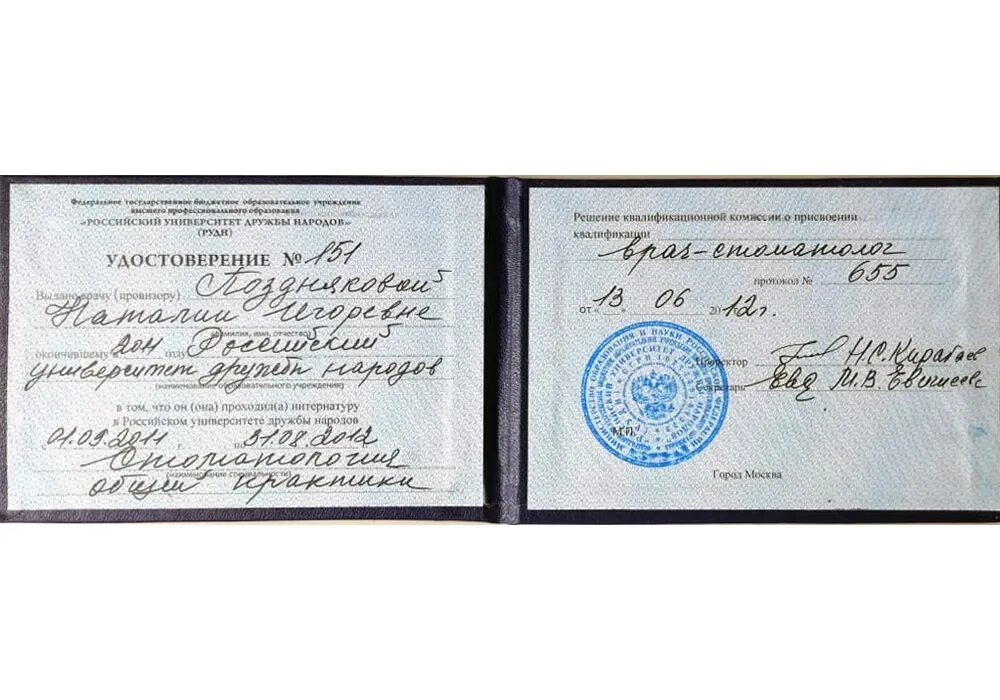 Федеральное государственное бюджетное образовательное учреждение
высшего профессионального образования
«РОССИЙСКИЙ УНИВЕРСИТЕТ ДРУЖБЫ НАРОДОВ»
(РУДН)
УДОСТОВЕРЕНИЕ № 151
Выдано врачу (провизору) Поздняковой
Наталии Игоревне
(фамилия, имя, отчество)
окончившему в 2011 году Российский
университет дружбы народов
(наименование образовательного учреждения)
в том, что он (она) проходил(а) интернатуру
в Российском университете дружбы народов
01.09.2011 по 31.08.2012
Стоматология
(наименование специальности)
общей практики
Решение квалификационной комиссии о присвоении
квалификации
врач-стоматолог
протокол № 655
от «13» 06 2012г.
Проректор Н.С. Кирабаев
Секретарь М.В.
М.П.
Город Москва